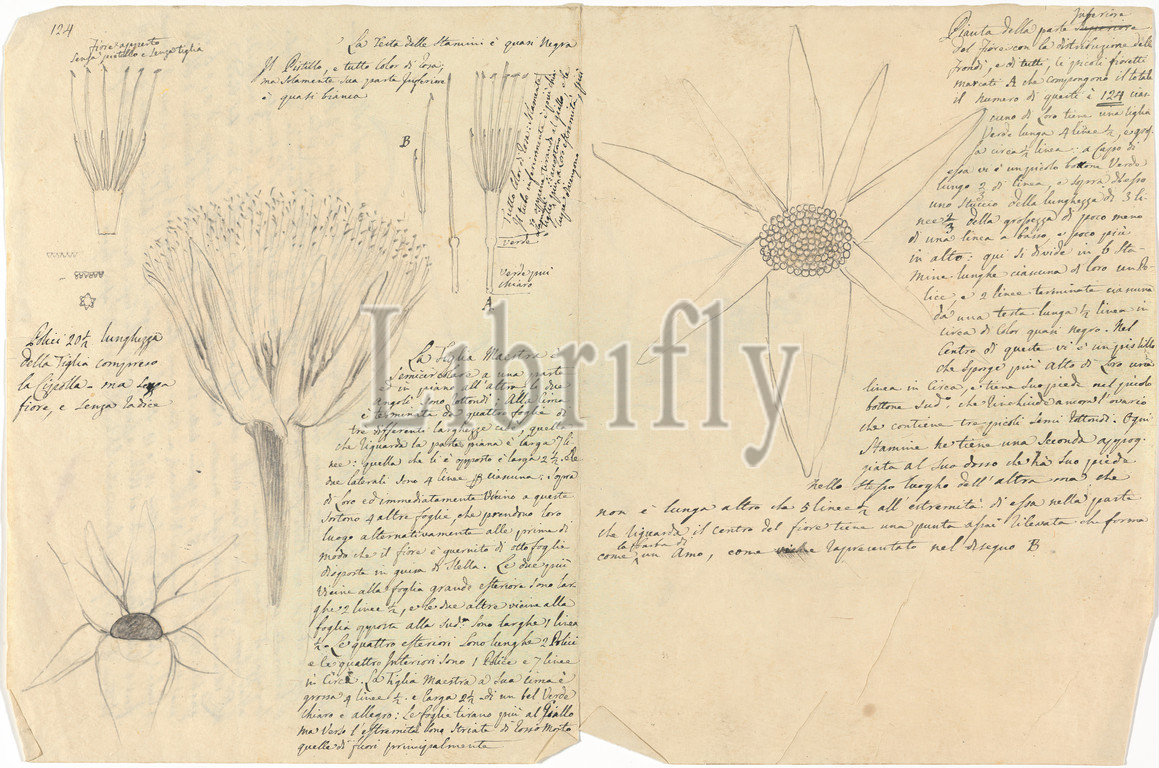 124
Fiore aperto
Senza pistillo e Senza tiglia
La Testa delle Stamini è quasi Negra
Il Pistillo, e tutto Color di Rosa;
ma Solamente Sua parte Inferiore
è quasi bianca
B
Verde
Verde più
chiaro
A
Polici 20 1/2 lunghezza
della Tiglia compreso
la Cipolla - ma Senza
fiore, e Senza Radice
La Tiglia Maestra è
Semicircolare a una parte
è in piano all'altra le due
angoli Sono Rottondi: Alla Cima
è terminata da quattro foglie di
tre differenti larghezze cioè quella
che riguarda la parte piana è larga 7 li
nee: quella che li è opposta è larga 2 1/2. Le
due laterali Sono 4 linee ciascuna: Sopra
di Loro ed immediatamente Vicino a queste
Sortono 4 altre foglie, che prendono loro
luogo alternativamente alle prime di
modo che il fiore è guernito di otto foglie
disposte in guisa di Stella. Le due più
Vicine alla foglia grande esteriore Sono lar-
ghe 2 linee 1/2, e le due altre vicine alla
foglia opposta alla Sud.ª Sono larghe 1 linea
1/2 - Le quattro esteriori Sono lunghe 2 Polici
e le quattro Interiori Sono 1 Police e 7 linee
in Circa. La Tiglia Maestra a Sua cima è
grossa 4 linee 1/2 e larga 2 1/2 di un bel Verde
chiaro e allegro: Le foglie tirano più al Giallo
ma Verso l'estremità Sono Striate di Rosso Morto
quelle di fuori principalmente
Pianta della parte Inferiore
del Fiore con la distribuzione delle
frondi, e di tutti, le picoli fioretti
marcati A che compongono il totale
il Numero di questi è 124 cias-
cuno di Loro tiene una tiglia
Verde lunga 4 linee 1/2, e gros-
sa circa 1/2 linea: a Capo di
essa vi è un picolo bottone Verde
lungo 2/3 di linea, e sopra desso
uno Stuccio della lunghezza di 3 li-
nee 1/3 della grossezza di poco meno
di una linea a basso, e poco più
in alto: qui si divide in 6 Sta-
mine lunghe ciascuna di loro un Po-
lice e 2 linee terminate ciascuna
da una testa lunga 1/2 linea in
circa di Color quasi Negro. Nel
Centro di queste vi è un pistillo
che Sporge più alto di Loro una
linea in Circa, e tiene Suo piede nel picolo
bottone Sud.º che Rinchiude ancora l'ovario
che contiene tre picoli Semi Rottondi. Ogni
Stamine ne tiene una Seconda appog-
giata al Suo dosso che hà Suo piede
nello Stesso luogho dell'altra ma che
non è lunga altro che 5 linee 1/2 all'estremità di essa nella parte
che riguarda il centro del fiore tiene una punta assai rilevata che forma
come la barba di un Amo, come viene rapresentato nel disegno B